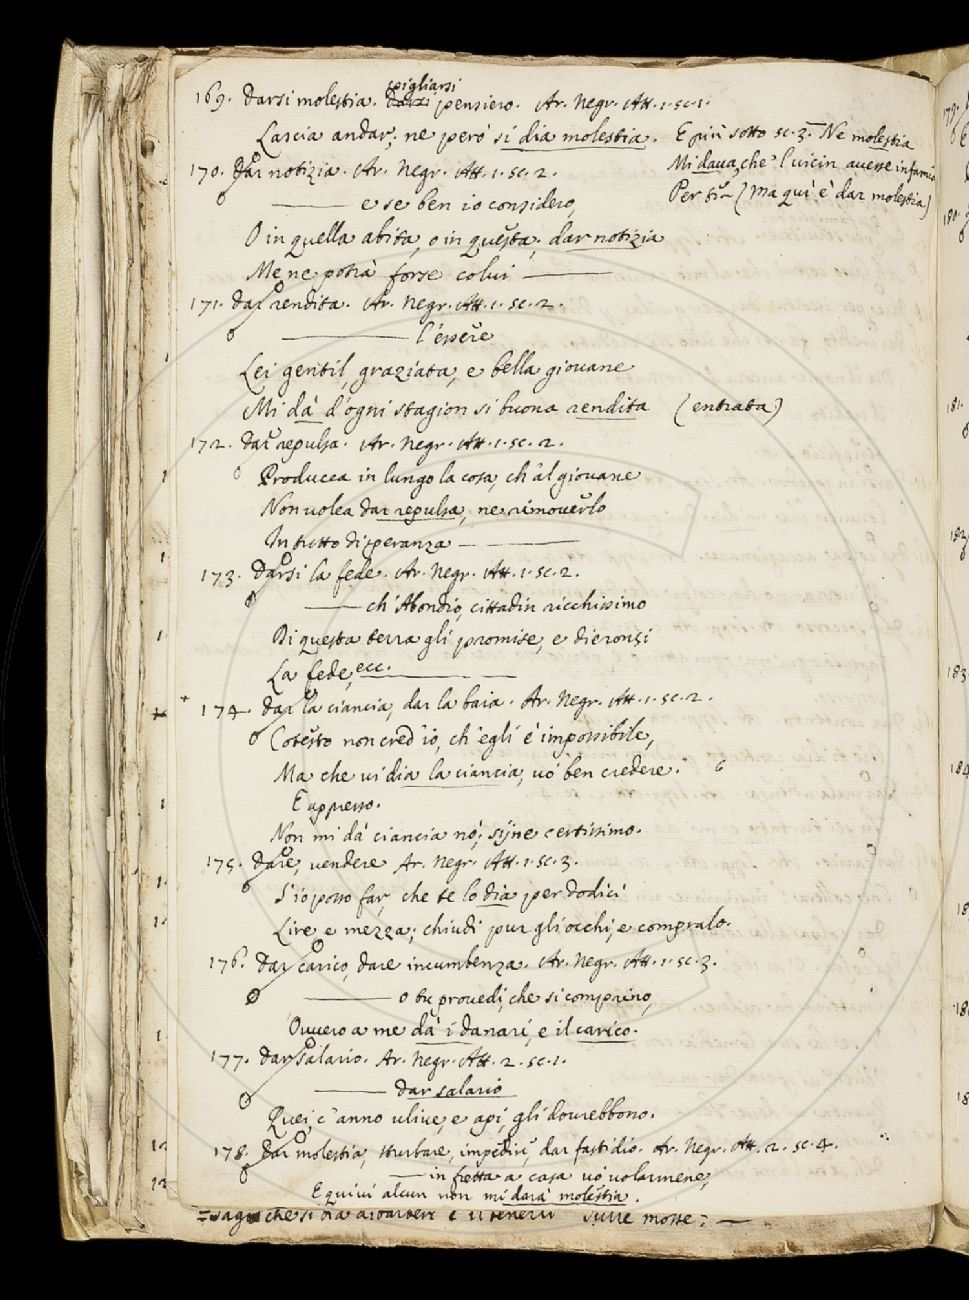 169. Darsi molestia. Darsi pigliarsi pensiero. Ar. Negr. Att. 1. sc. 1.
Lascia andar; ne però si dia molestia. E più sotto sc. 3. Ne molestia
Mi daua, che l'uicin auesse infamia
Per ti (ma quì è dar molestia)
170. Dar notizia. Ar. Negr. Att. 1. sc. 2.
e se ben io considero,
O in quella abita, o in questa; dar notizia
Me ne potrà forse colui
171. Dar rendita. Ar. Negr. Att. 1. sc. 2.
l'essere
Lei gentil, graziata, e bella giouane
Mi dà d'ogni stagion si buona rendita (entrata)
172. Dar repulsa. Ar. Negr. Att. 1. sc. 2.
Producea in lungo la cosa, ch'al giouane
Non uolea dar repulsa, ne rimouerlo
In tutto di speranza
173. Darsi la fede. Ar. Negr. Att. 1. sc. 2.
ch'Abondio, cittadin ricchissimo
Di questa terra gli promise, e dieronsi
La fede, ecc.
174. Dar la ciancia, dar la baia. Ar. Negr. Att. 1. sc. 2.
Cotesto non cred'io, ch'egli è impossibile,
Ma che ui dia la ciancia, uò ben credere.
E appresso.
Non mi dà ciancia nò; siine certissimo.
175. Dare, vendere Ar. Negr. Att. 1. sc. 3.
S'io posso far, che te lo dia per dodici
Lire e mezza; chiudi pur gli occhi, e compralo.
176. Dar carico, dare incumbenza. Ar. Negr. Att. 1. sc. 3.
o tu prouedi, che si comprino,
Ouuero a me dà i danari, e il carico.
177. Dar salario. Ar. Negr. Att. 2. sc. 1.
dar salario
Quei, c'anno uliue, e api, gli dourebbono.
178. Dar molestia, sturbare, impedir, dar fastidio. Ar. Negr. Att. 2. sc. 4.
in fretta a casa uò uolarmene,
E quiui alcun non mi darà molestia.
che si